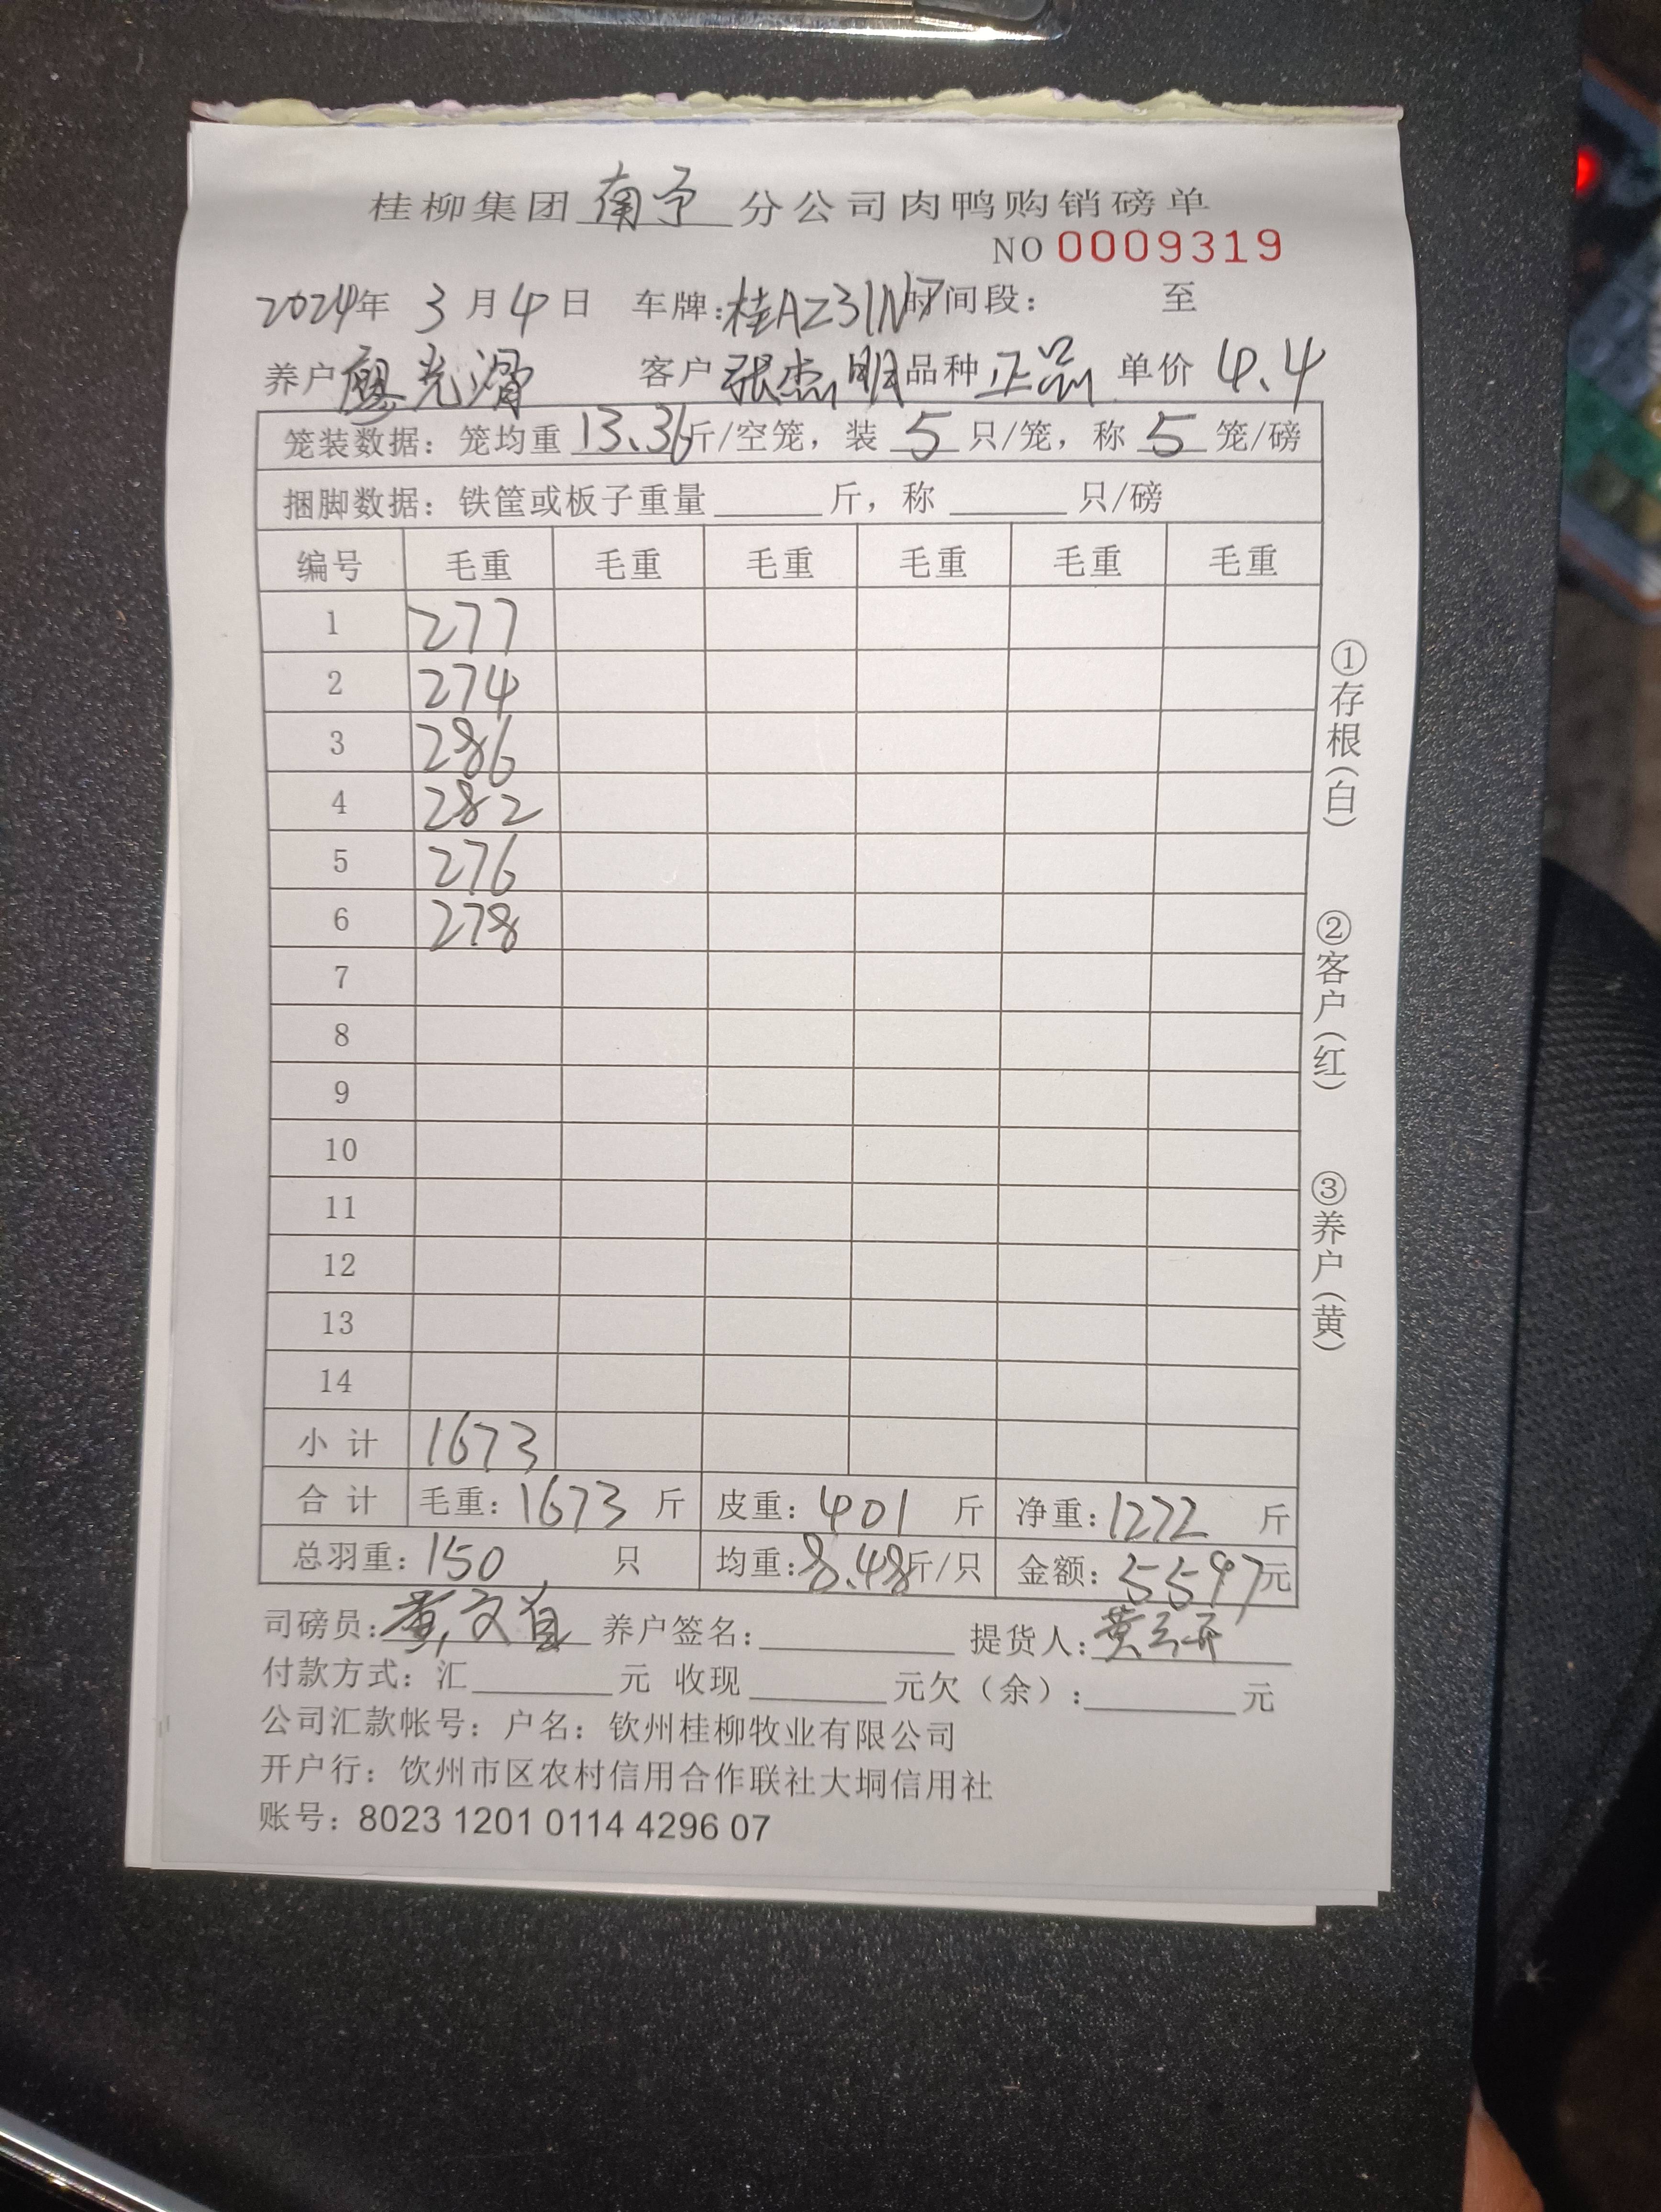 桂柳集团南宁分公司肉鸭购销磅单
NO 0009319
2024年 3月4日 车牌:桂AZ31N7时间段: 至
养户廖光滑 客户张杰明品种正品 单价4.4
笼装数据:笼均重13.36斤/空笼,装5只/笼,称5笼/磅
捆脚数据:铁筐或板子重量______斤,称______只/磅
编号 毛重 毛重 毛重 毛重 毛重 毛重
1 277
2 274
3 286
4 282
5 276
6 278
7
8
9
10
11
12
13
14
小计 1673
合计 毛重:1673斤 皮重:401斤 净重:1272斤
总羽重:150只 均重:8.48斤/只 金额:5597元
司磅员:黄文 养户签名:______ 提货人:黄
付款方式:汇______元 收现______元欠(余):______元
公司汇款帐号:户名:钦州桂柳牧业有限公司
开户行:饮州市区农村信用合作联社大垌信用社
账号:8023 1201 0114 4296 07
①存根(白)
②客户(红)
③养户(黄)